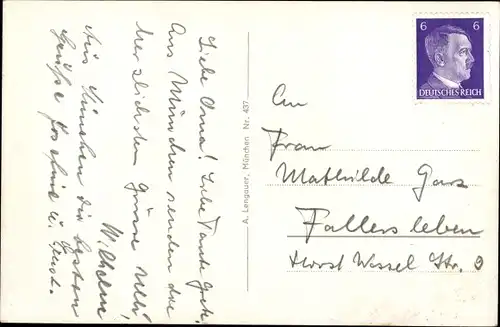 Liebe Oma! Liebe Tante Grete!
Aus München senden die
herzlichsten Grüsse
Wilhelm
Aus München die besten
Grüße
A. Lengauer, München Nr. 437
6 6
DEUTSCHES REICH
An
Frau
Mathilde Gars
Fallersleben
Horst Wessel Str. 9